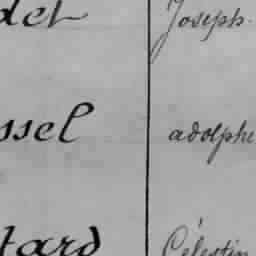 det Joseph.
ssel adolphe
tard Célestin